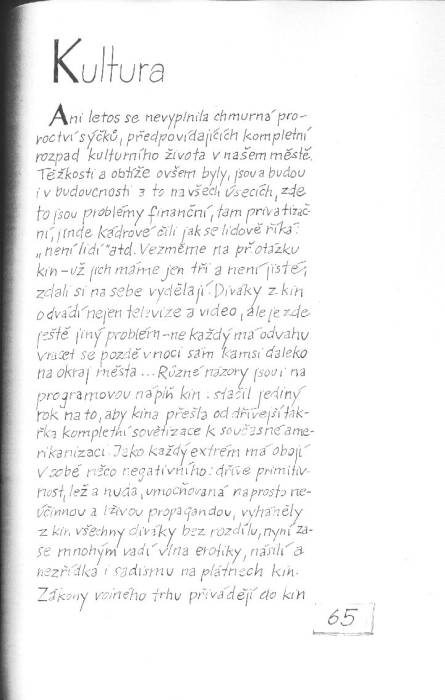 Kultura
Ani letos se nevyplnila chmurná pro-
roctví sýčků, předpovídajících kompletní
rozpad kulturního života v našem městě.
Těžkosti a obtíže ovšem byly, jsou a budou
i v budoucnosti a to na všech úsecích, zde
to jsou problémy finanční, tam privatizač-
ní, jinde kádrové čili jak se lidově říká:
„není lidí" atd. Vezměme na př. otázku
kin – už jich máme jen tři a není jisté,
zdali si na sebe vydělají. Diváky z kin
odvádí nejen televize a video, ale je zde
ještě jiný problém – ne každý má odvahu
vracet se pozdě v noci sám kamsi daleko
na okraj města... Různé názory jsou i na
programovou náplň kin: stačil jediný
rok na to, aby kina přešla od dřívější tak-
řka kompletní sovětizace k současné ame-
rikanizaci. Jako každý extrém má obojí
v sobě něco negativního: dříve primitiv-
nost, lež a nuda, umocňovaná naprosto ne-
účinnou a lživou propagandou, vyháněly
z kin všechny diváky bez rozdílu, nyní za-
se mnohým vadí vlna erotiky, násilí a
nezřídka i sadismu na plátnech kin.
Zákony volného trhu přivádějí do kin
65